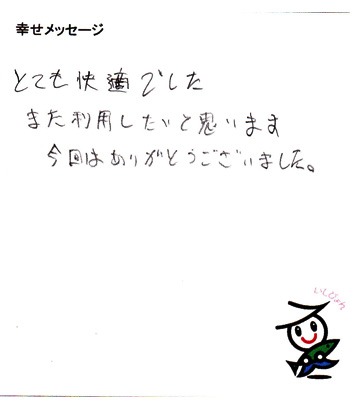 幸せメッセージ
とても快適でした
また利用したいと思います
今回はありがとうございました。